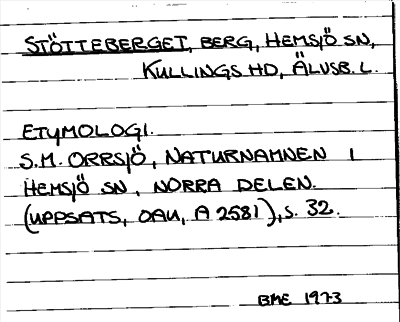 STÖTTEBERGET, BERG, HEMSJÖ SN,
KULLINGS HD, ÄLVSB. L.
ETYMOLOGI.
S.M. ORRSJÖ, NATURNAMNEN I
HEMSJÖ SN, NORRA DELEN.
(UPPSATS, OAU, A 2581), S. 32.
BME 1973